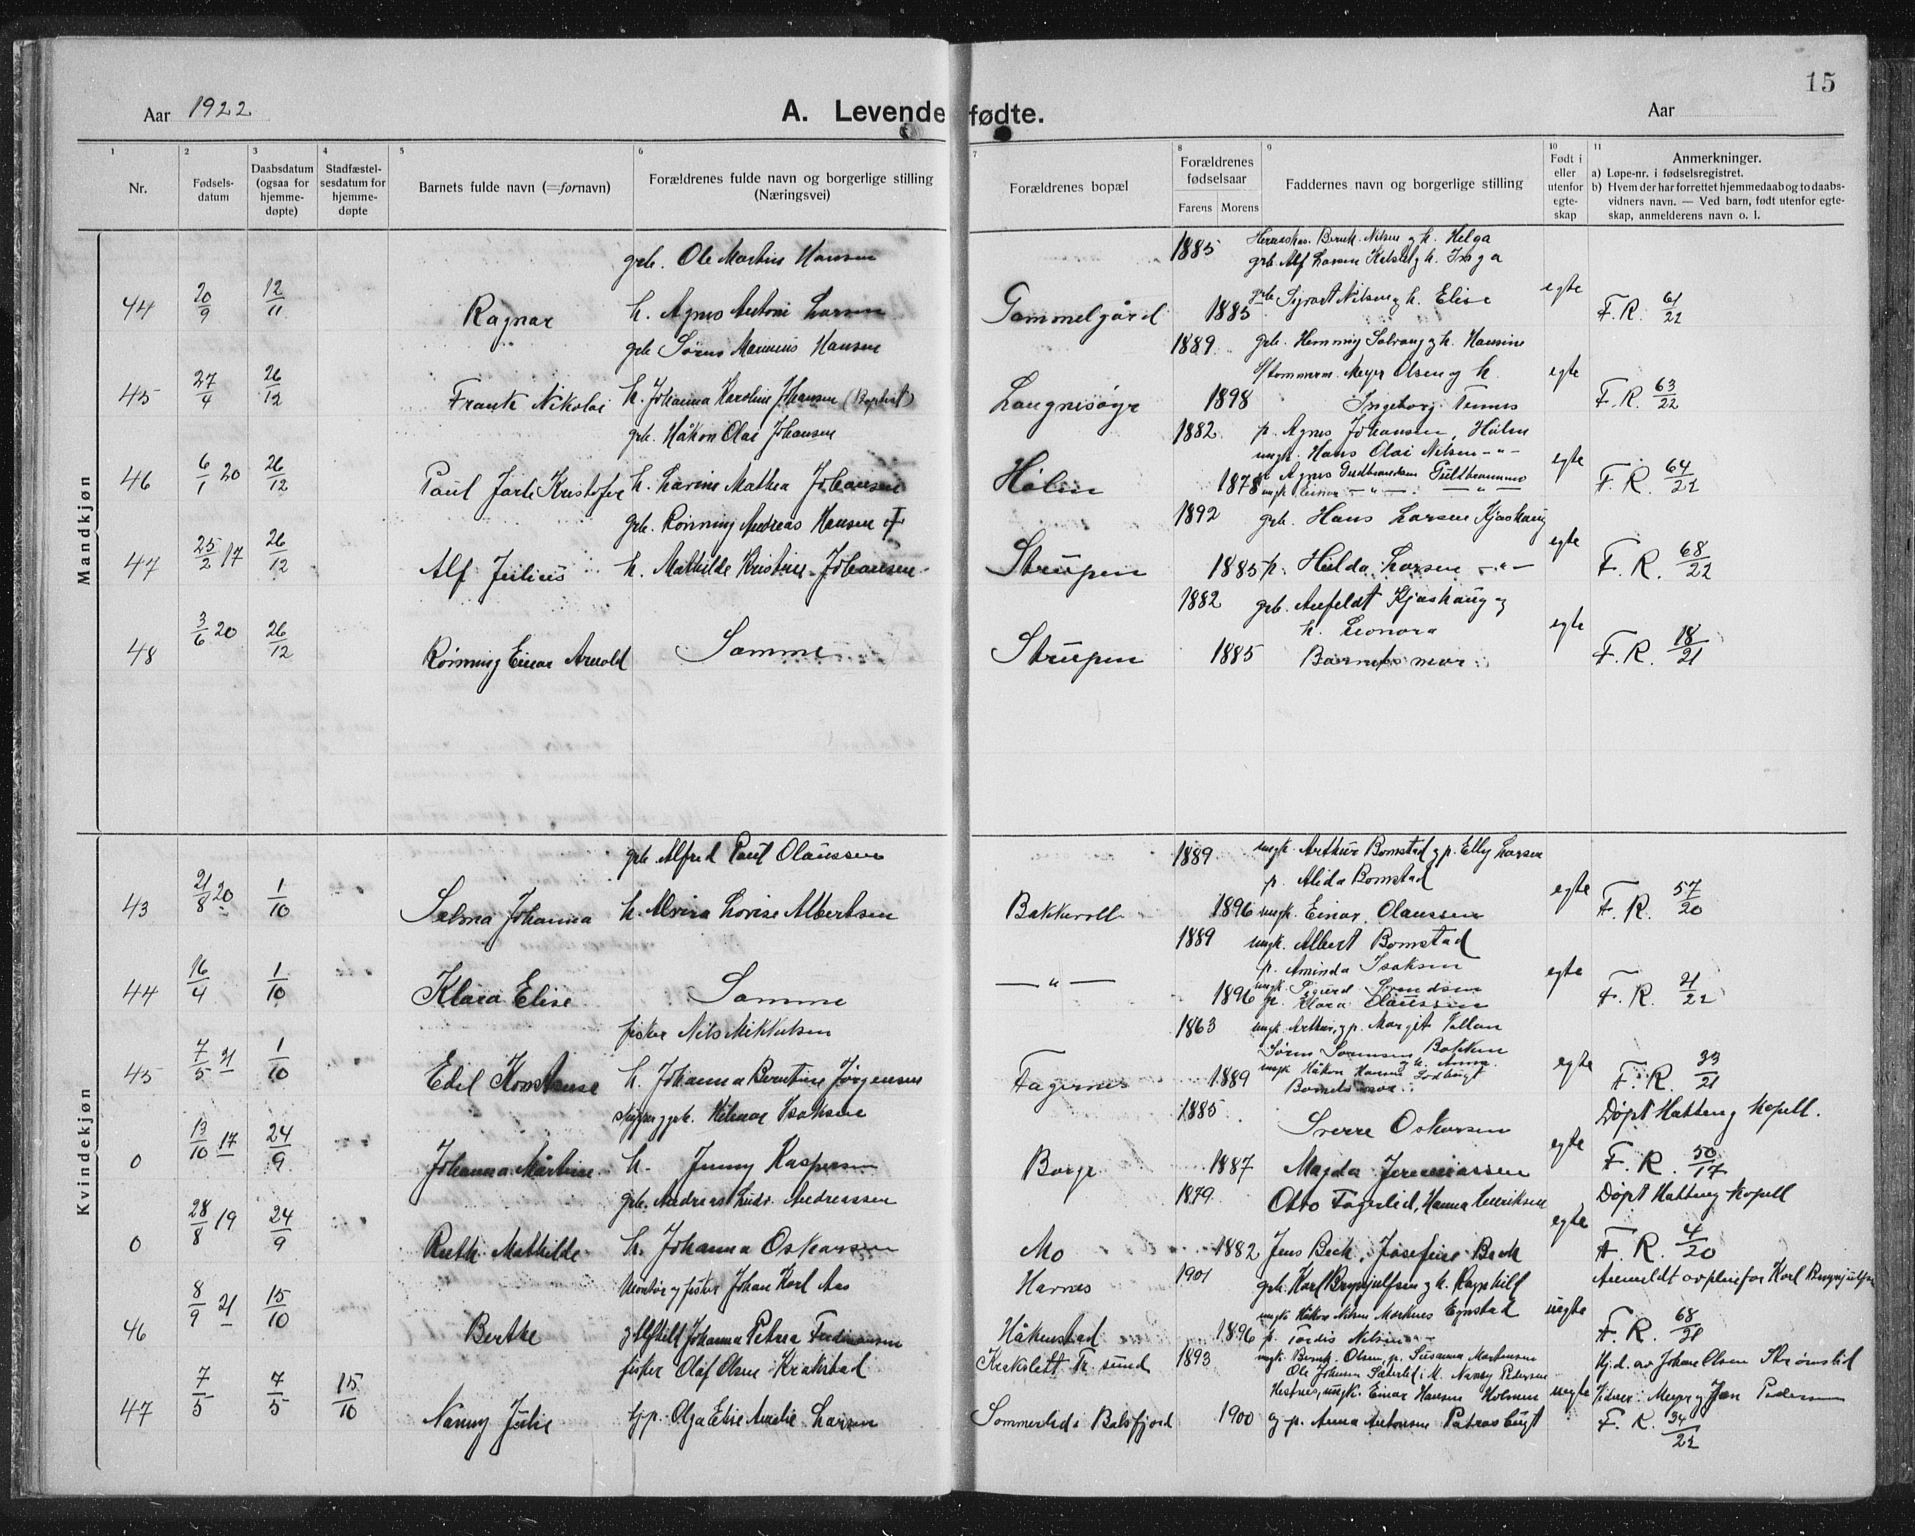 15
Aar 1922
A. Levendefødte.
Aar
1 2 3 4 5 6 7 8 9 10 11
Nr.
Fødsels-
datum
Daabsdatum
(ogsaa for
hjemme-
døpte)
Stadfæstel-
sesdatum for
hjemme-
døpte
Barnets fulde navn (=fornavn)
Forældrenes fulde navn og borgerlige stilling
(Næringsvei)
Forældrenes bopæl
Forældrenes
fødselsaar
Farens Morens
Faddernes navn og borgerlige stilling
Født i
eller
utenfor
egte-
skap
Anmerkninger.
a) Løpe-nr. i fødselsregistret.
b) Hvem der har forrettet hjemmedaab og to daabs-
vidners navn. — Ved barn, født utenfor egte-
skap, anmelderens navn o. l.
Mandkjøn
grb. Ole Martin Hansen 1885 Bernh. Nilsen og h. Helga
grb. Alf Larsen og h. Inga
44 20/9 12/11 Ragnar h. Agnes Antoni Larsen Gammelgård 1885 grb. Sigvart Nilsen og h. Elise egte F. R. 61/22
grb Sørus Hansen 1889 grb. Hemming Solvang og h. Hansine
45 27/4 26/12 Frank Nikolai h. Johanna Karoline Johansen (Baptist) Langnesøyr 1898 Meyer Olsen og h. egte F. R. 63/22
Ingeborg
grb. Håkon Olai Johansen 1882 p. Agnes Johansen, Holm
ungk. Hans Olai Nilsen -"-
46 6/1 20 26/12 Paul Jarle Kristofer h. Larine Mathea Johansen Holm 1878 p. Agnes Gudbrandsen egte F. R. 64/22
ungk. Einar -"- -"-
grb. Rønning Andreas Hansen † 1892 grb. Hans Larsen Kjoshaug
47 25/2 17 26/12 Alf Julius h. Mathilde Kristine Johansen Strupen 1885 p. Hilda Larsen -"- egte F. R. 68/22
1882 grb. Anfeldt Kjoshaug og
h. Leonora
48 3/6 20 26/12 Rønning Einar Arnold Samme Strupen 1885 Barnets mor egte F. R. 18/21
Kvindekjøn
grb Alfred Paul Olaussen 1889 ungk. Arthur Bomstad og p. Elly Larsen
p. Alida Bomstad
43 21/8 20 1/10 Selma Johanna h. Alvira Lovise Albertsen Bakkevoll 1896 ungk. Einar Olaussen egte F. R. 57/20
1889 ungk. Albert Bomstad
p. Aminda Isaksen
44 16/4 1/10 Klara Elise Samme -"- 1896 ungk. Sigurd Svendsen egte F. R. 21/22
p. Klara Olaussen
fisker Nils Mikkelsen 1863 ungk. Arthur og p. Margit Vollan
Søren Sørensen Bakken
og h. Anna
45 7/5 21 1/10 Edel Konstanse h. Johanna Berntine Jørgensen Fagernes 1889 ungk. Håkon Hansen egte F. R. 33/21
Barnets mor
Hilmar Isaksen 1885 Sverre Oskarsen Døpt Hatteng Kapell.
0 13/10 17 24/9 Johanna Martine h. Jenny Kaspersen Borge 1887 Magda Jeremiassen egte F. R. 50/17
grb. Andreas Ludv. Andreassen 1879 Otto Fagerlid, Hanna Henriksen Døpt Hatteng Kapell
0 28/8 19 24/9 Ruth Mathilde h. Johanna Oskarsen Mo 1882 Jens Beck, Josefine Beck egte F. R. 4/20
fisker Johan Karl Aas Harnes 1901 grb. Karl Brynjulfsen og h. Ragnhild Anmeldt av pleiefar Karl Brynjulfsen
46 8/9 21 15/10 Berthe og Alfhild Johanna Petrea Ferdinansen Håkenstad 1896 ungk. Håkon Nilsen uegte F. R. 68/21
p. Tordis Nilsen
fisker Olaf Olsen Krakstad Krakslett Tr. sund 1893 ungk. Bernh. Olsen, p. Susanna Martinsen Hj. d. av Johan Olsen Strømslid
Ole Johansen Sæterlid i M. Nanny Pedersen
47 7/5 7/5 15/10 Nanny Julie tjp. Olga Elise Amelie Larsen Sommerlid i Balsfjord 1900 ungk. Einar Hansen Holmen uegte Jan Pedersen
og p. Anna Antonsen F. R. 34/22